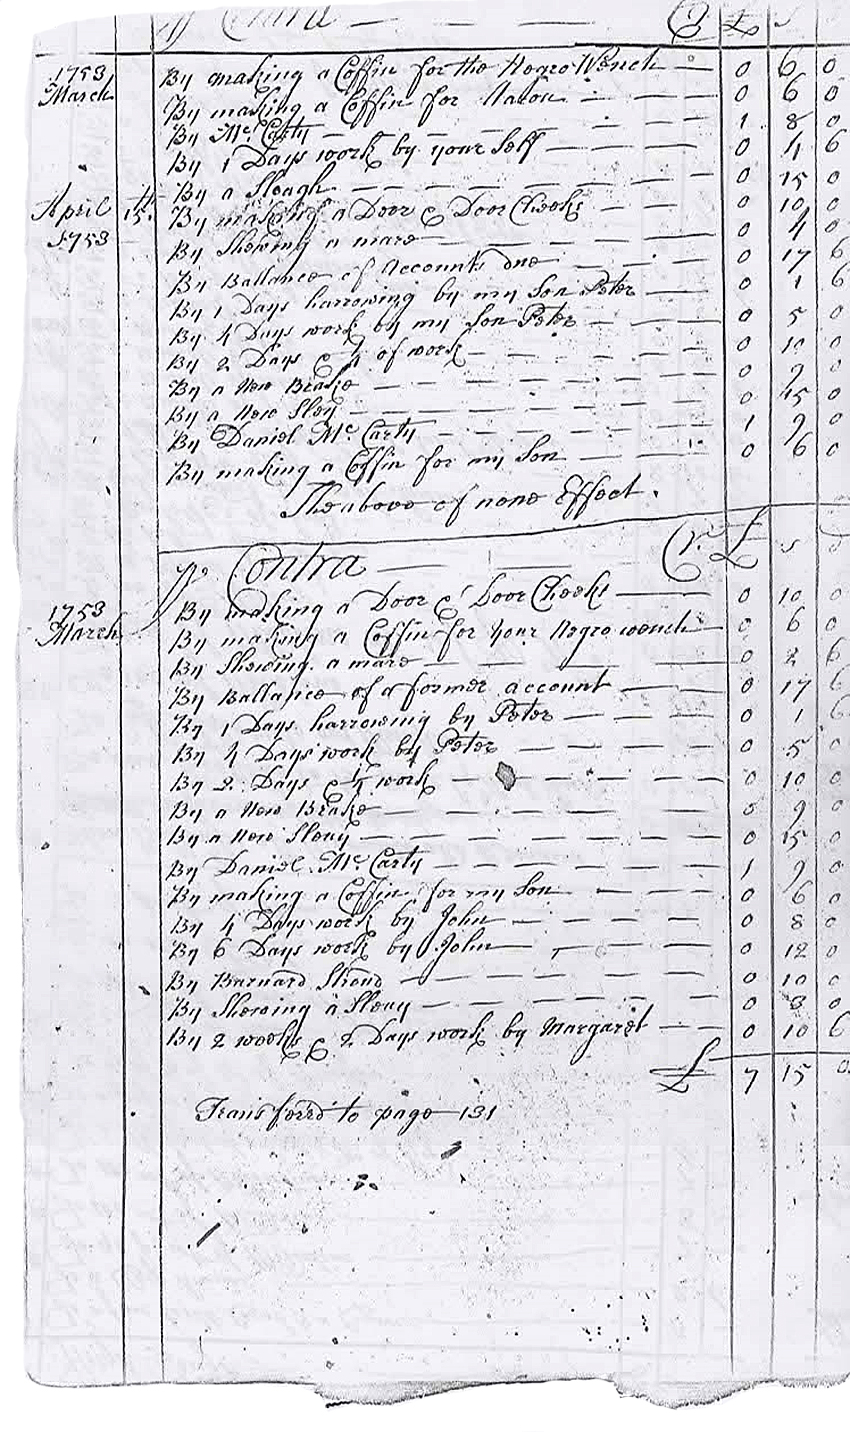 Contra — — — Cr £ s
1753 By making a Coffin for the Negro Wench — 0 6 0
March By making a Coffin for Aaron — 0 6 0
By Mc Carty — — — 1 8 0
By 1 Days work by your Self — — 0 4 6
By a Sleagh — — — 0 15 0
April 15th By making a Door & Door Cheeks — 0 10 0
1753 By Shewing a mare — — 0 4 0
By Ballance of Accounts due — — 0 17 6
By 1 Days harrowing by my Son Peter — 0 1 6
By 4 Days work by my Son Peter — 0 5 0
By 2 Days & 1/4 of work — — 0 10 0
By a New Brake — — — 0 9 0
By a New Sley — — — 0 15 0
By Daniel Mc Carty — — 1 9 0
By making a Coffin for my Son — — 0 6 0
The above of none Effect.
Pr Contra — — — Cr. £ s
By making a Door & Door Cheeks — 0 10 0
1753 By making a Coffin for your Negro wench — 0 6 0
March By Shewing a mare — — 0 2 6
By Ballance of a former account — 0 17 6
By 1 Days harrowing by Peter — — 0 1 6
By 4 Days work by Peter — — 0 5 0
By 2 Days & 1/4 work — — 0 10 0
By a New Brake — — — 0 9 0
By a New Sleay — — — 0 15 0
By Daniel Mc Carty — — 1 9 0
By making a Coffin for my Son — — 0 6 0
By 4 Days work by John — — 0 8 0
By 6 Days work by John — — 0 12 0
By Barnard Stroud — — 0 10 0
By Shewing a Sleay — — 0 3 0
By 2 weeks & 2 Days work by Margaret — 0 10 6
£ 7 15 0
Transferrd to page 131